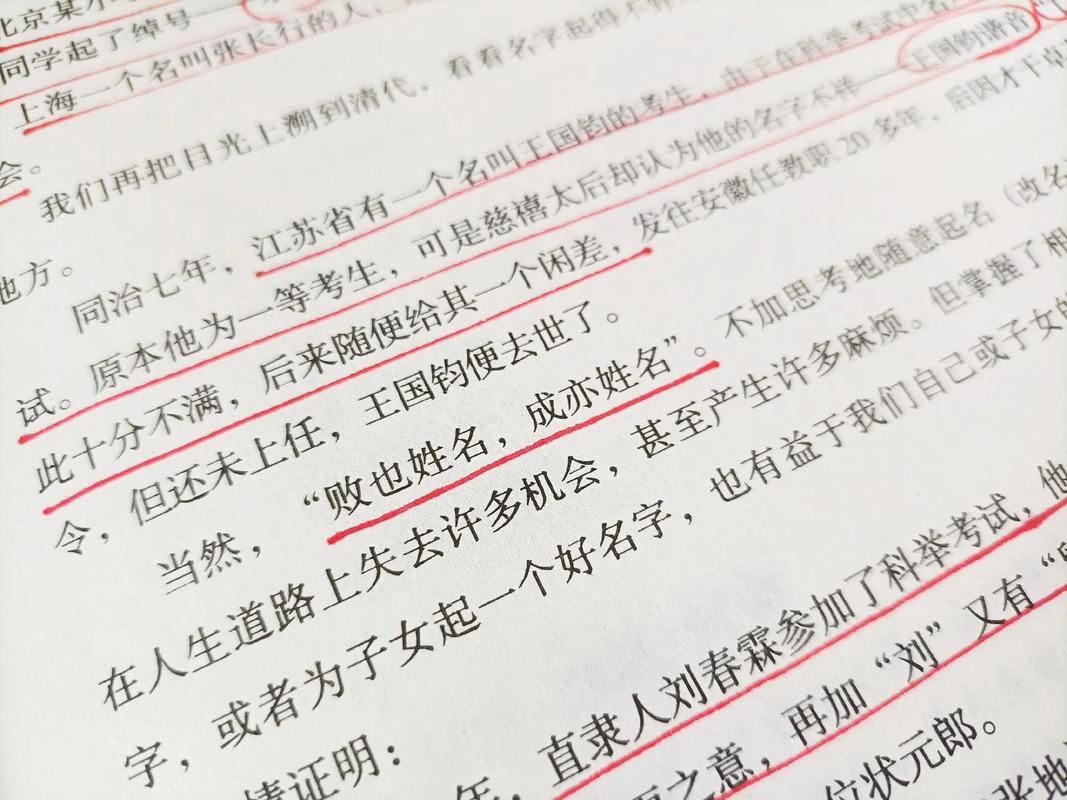 北京某小
同学起了绰号——
上海一个名叫张长行的人，
会。
我们再把目光上溯到清代，看看名字起得不好
地方。
同治七年，江苏省有一个名叫王国钧的考生，由于在科举考试中名
试。原本他为一等考生，可是慈禧太后却认为他的名字不祥——王国钧谐音“
此十分不满，后来随便给其一个闲差，发往安徽任教职20多年，后因才干卓
令，但还未上任，王国钧便去世了。
当然，“败也姓名，成亦姓名”。不加思考地随意起名（改名
在人生道路上失去许多机会，甚至产生许多麻烦。但掌握了相
字，或者为子女起一个好名字，也有益于我们自己或子女的
情证明：
年，直隶人刘春霖参加了科举考试，他
之意，再加“刘”又有“
位状元郎。
张地